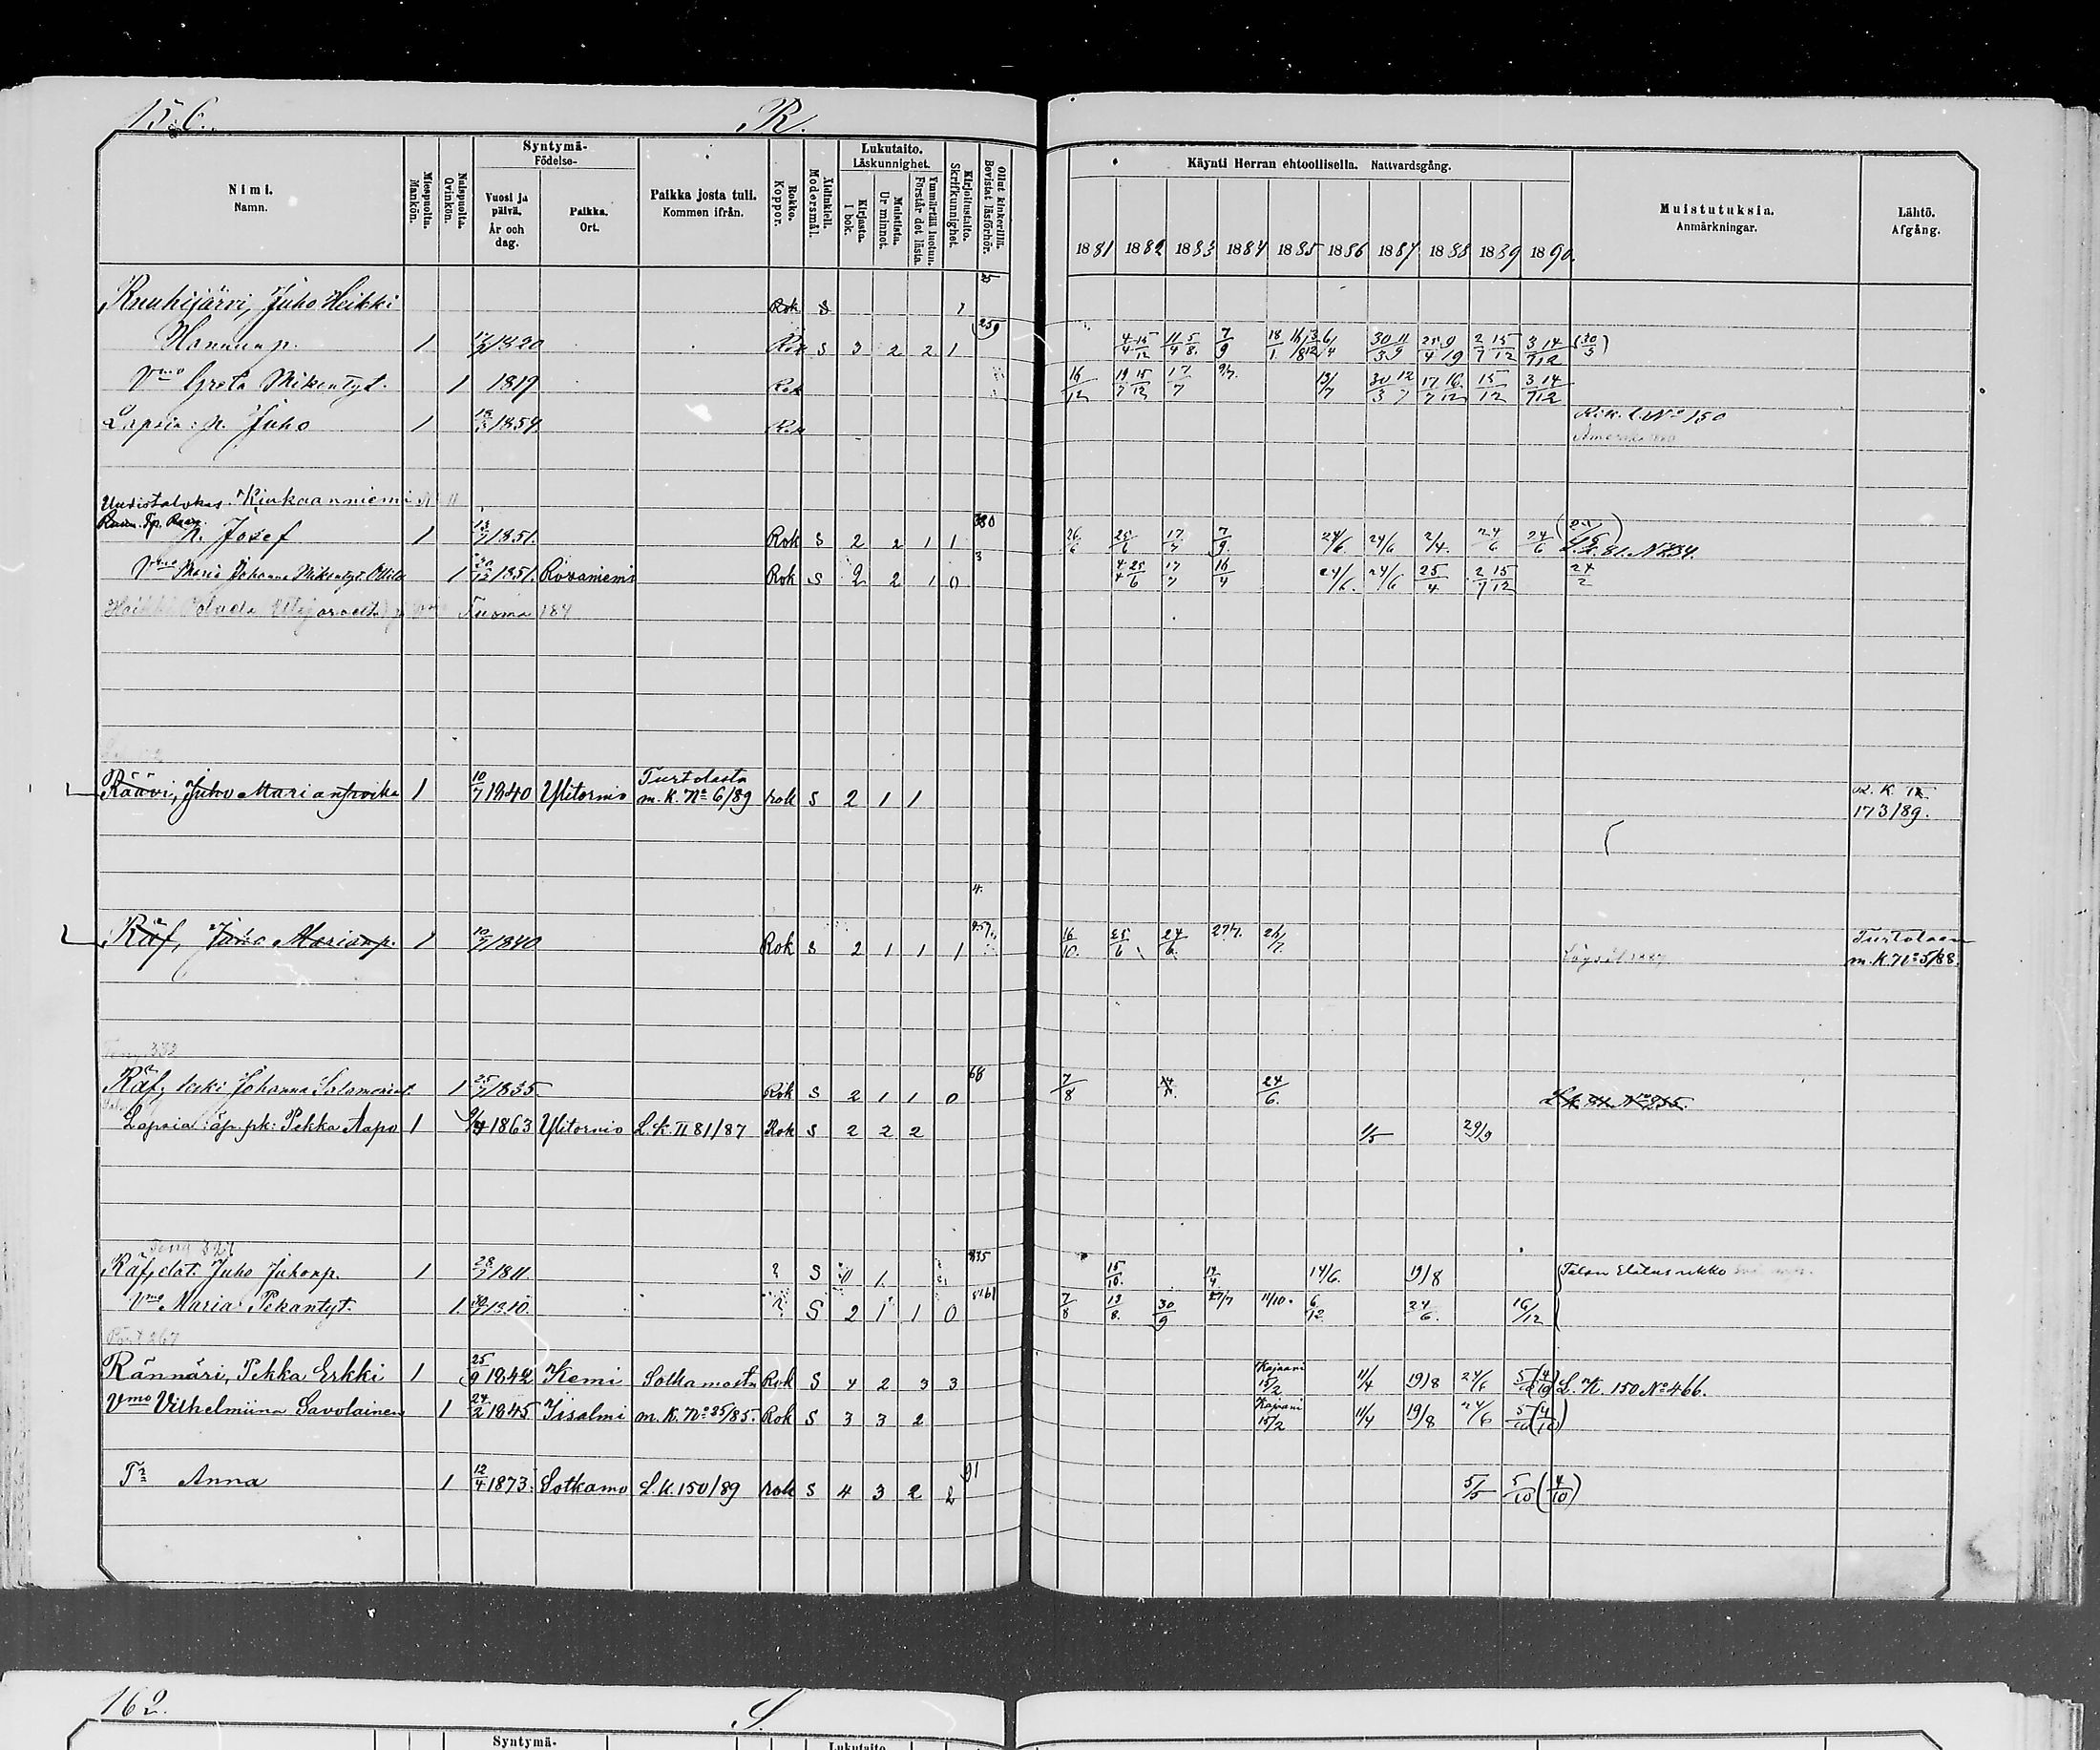 156. R.
Nimi. Namn.
Miespuolta. Mankön.
Naispuolta. Qvinkön.
Syntymä- Födelse-
Vuosi ja päivä. År och dag.
Paikka. Ort.
Paikka josta tuli. Kommen ifrån.
Rokko. Koppor.
Äidinkieli. Modersmål.
Lukutaito. Läskunnighet.
Kirjasta. I bok.
Muistista. Ur minnet.
Ymmärtää luetun. Förstår det lästa.
Kirjoitustaito. Skrifkunnighet.
Ollut kinkerillä. Bevistat läsförhör.
Käynti Herran ehtoollisella. Nattvardsgång.
1881 1882 1883 1884 1885 1886 1887 1888 1889 1890.
Muistutuksia. Anmärkningar.
Lähtö. Afgång.
Ruuhijärvi, Juho Heikki Rok S 1
Hannunp. 1 1820 Rok S 3 2 2 1 259 4/4 15/12 11/4 5/8. 7/9 18/1 30/3 11/9 2/7 15/12 3/7 14/12 (30/3)
Vmo Greta Mikentyt. 1 1819 Rok 16/12 19/7 15/12 17/7 9/7. 30/3 12/7 17/7 16/12 15/12 3/7 14/12
Lapsia: p. Juho 1 1859 Rok R.K. l. No 150
Uudistalokas. Kiukaanniemi
p. Josef 1 1851. Rok S 2 2 1 1 380 26/6 25/6 17/7 7/9 24/6. 24/6 2/4. 24/6 24/6
Vmo Maria Johanna Mikentyt. 1 1851. Rovaniemi Rok S 2 2 1 0 3 4/4 25/6 17/7 16/4 24/6. 24/6 25/4 2/7 15/12 24/2
Räävi, Juho Marianpoika 1 10/7 1840 Ylitornio Turtolasta m.K. No 6/89 rok S 2 1 1 173/89.
4.
Räf, Juho Marianp. 1 10/7 1840 Rok S 2 1 1 1 16/10. 25/6 24/6. 27/7. 26/7. Turtolaan m.K. No 5/88.
Räf, leski Johanna Salomonint. 1 25/7 1835. Rok S 2 1 1 0 68 7/8 24/6.
Lapsia: äp. pk: Pekka Aapo 1 1863 Ylitornio L.K. II 81/87 Rok S 2 2 2 1/5 29/9
Räf, elät. Juho Juhonp. 1 28/7 1811. ? S 0 1. 435 15/10. 14/6. 19/8 Talon Elätusrukko
Vmo Maria Pekantyt. 1. 1810. ? S 2 1 1 0 7/8 19/8. 30/9 27/7 11/10. 6/12. 24/6. 16/12
Rännäri, Pekka Erkki 1 25/9 1842 Kemi Sotkamosta Rok S 4 2 3 3 Kajaani 15/2 11/4 19/8 24/6 5/10 (4/10) L.K. 150 No 466.
Vmo Vilhelmiina Savolainen 1 24/2 1845 Iisalmi m.K. No 35/85. Rok S 3 3 2 Kajaani 15/2 11/4 19/8 24/6 5/10 (4/10)
Tr Anna 1 12/4 1873. Sotkamo L.K. 150/89 rok S 4 3 2 2 91 5/5 5/10 (4/10)
162. S.
Syntymä-
Lukutaito